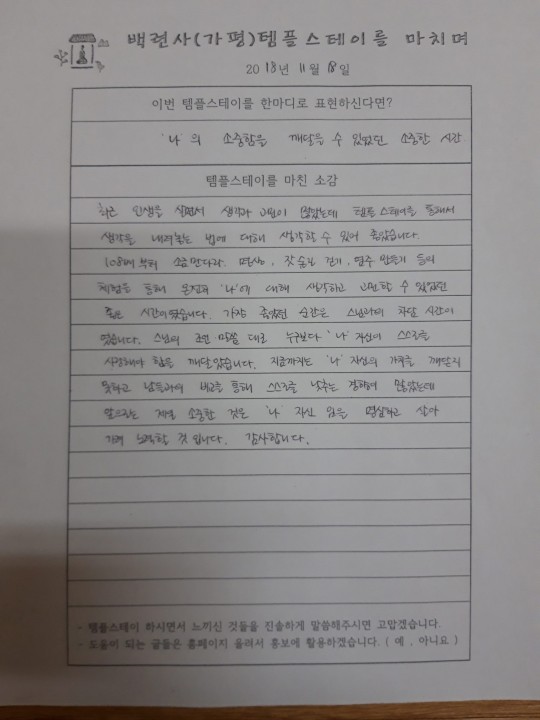 백련사(가평)템플스테이를 마치며
2018년 11월 18일
이번 템플스테이를 한마디로 표현하신다면?
'나'의 소중함을 깨달을 수 있었던 소중한 시간
템플스테이를 마친 소감
최근 인생을 살면서 생각과 고민이 많았는데 템플스테이를 통해서
생각을 내려놓는 법에 대해 생각할 수 있어 좋았습니다.
108배부터 소금만다라, 명상, 잣숲길 걷기, 염주 만들기 등의
체험을 통해 온전히 '나'에 대해 생각하고 고민할 수 있었던
좋은 시간이었습니다. 가장 좋았던 순간은 스님과의 차담 시간이
었습니다. 스님의 조언·말씀 대로 누구보다 '나' 자신이 스스로를
사랑해야 함을 깨달았습니다. 지금까지는 '나' 자신의 가치를 깨닫지
못하고 남들과의 비교를 통해 스스로를 낮추는 경향이 많았는데
앞으로는 제일 소중한 것은 '나' 자신 임을 명심하고 살아
가려 노력할 것입니다. 감사합니다.
- 템플스테이 하시면서 느끼신 것들을 진솔하게 말씀해주시면 고맙겠습니다.
- 도움이 되는 글들은 홈페이지 올려서 홍보에 활용하겠습니다. ( 예 , 아니요 )